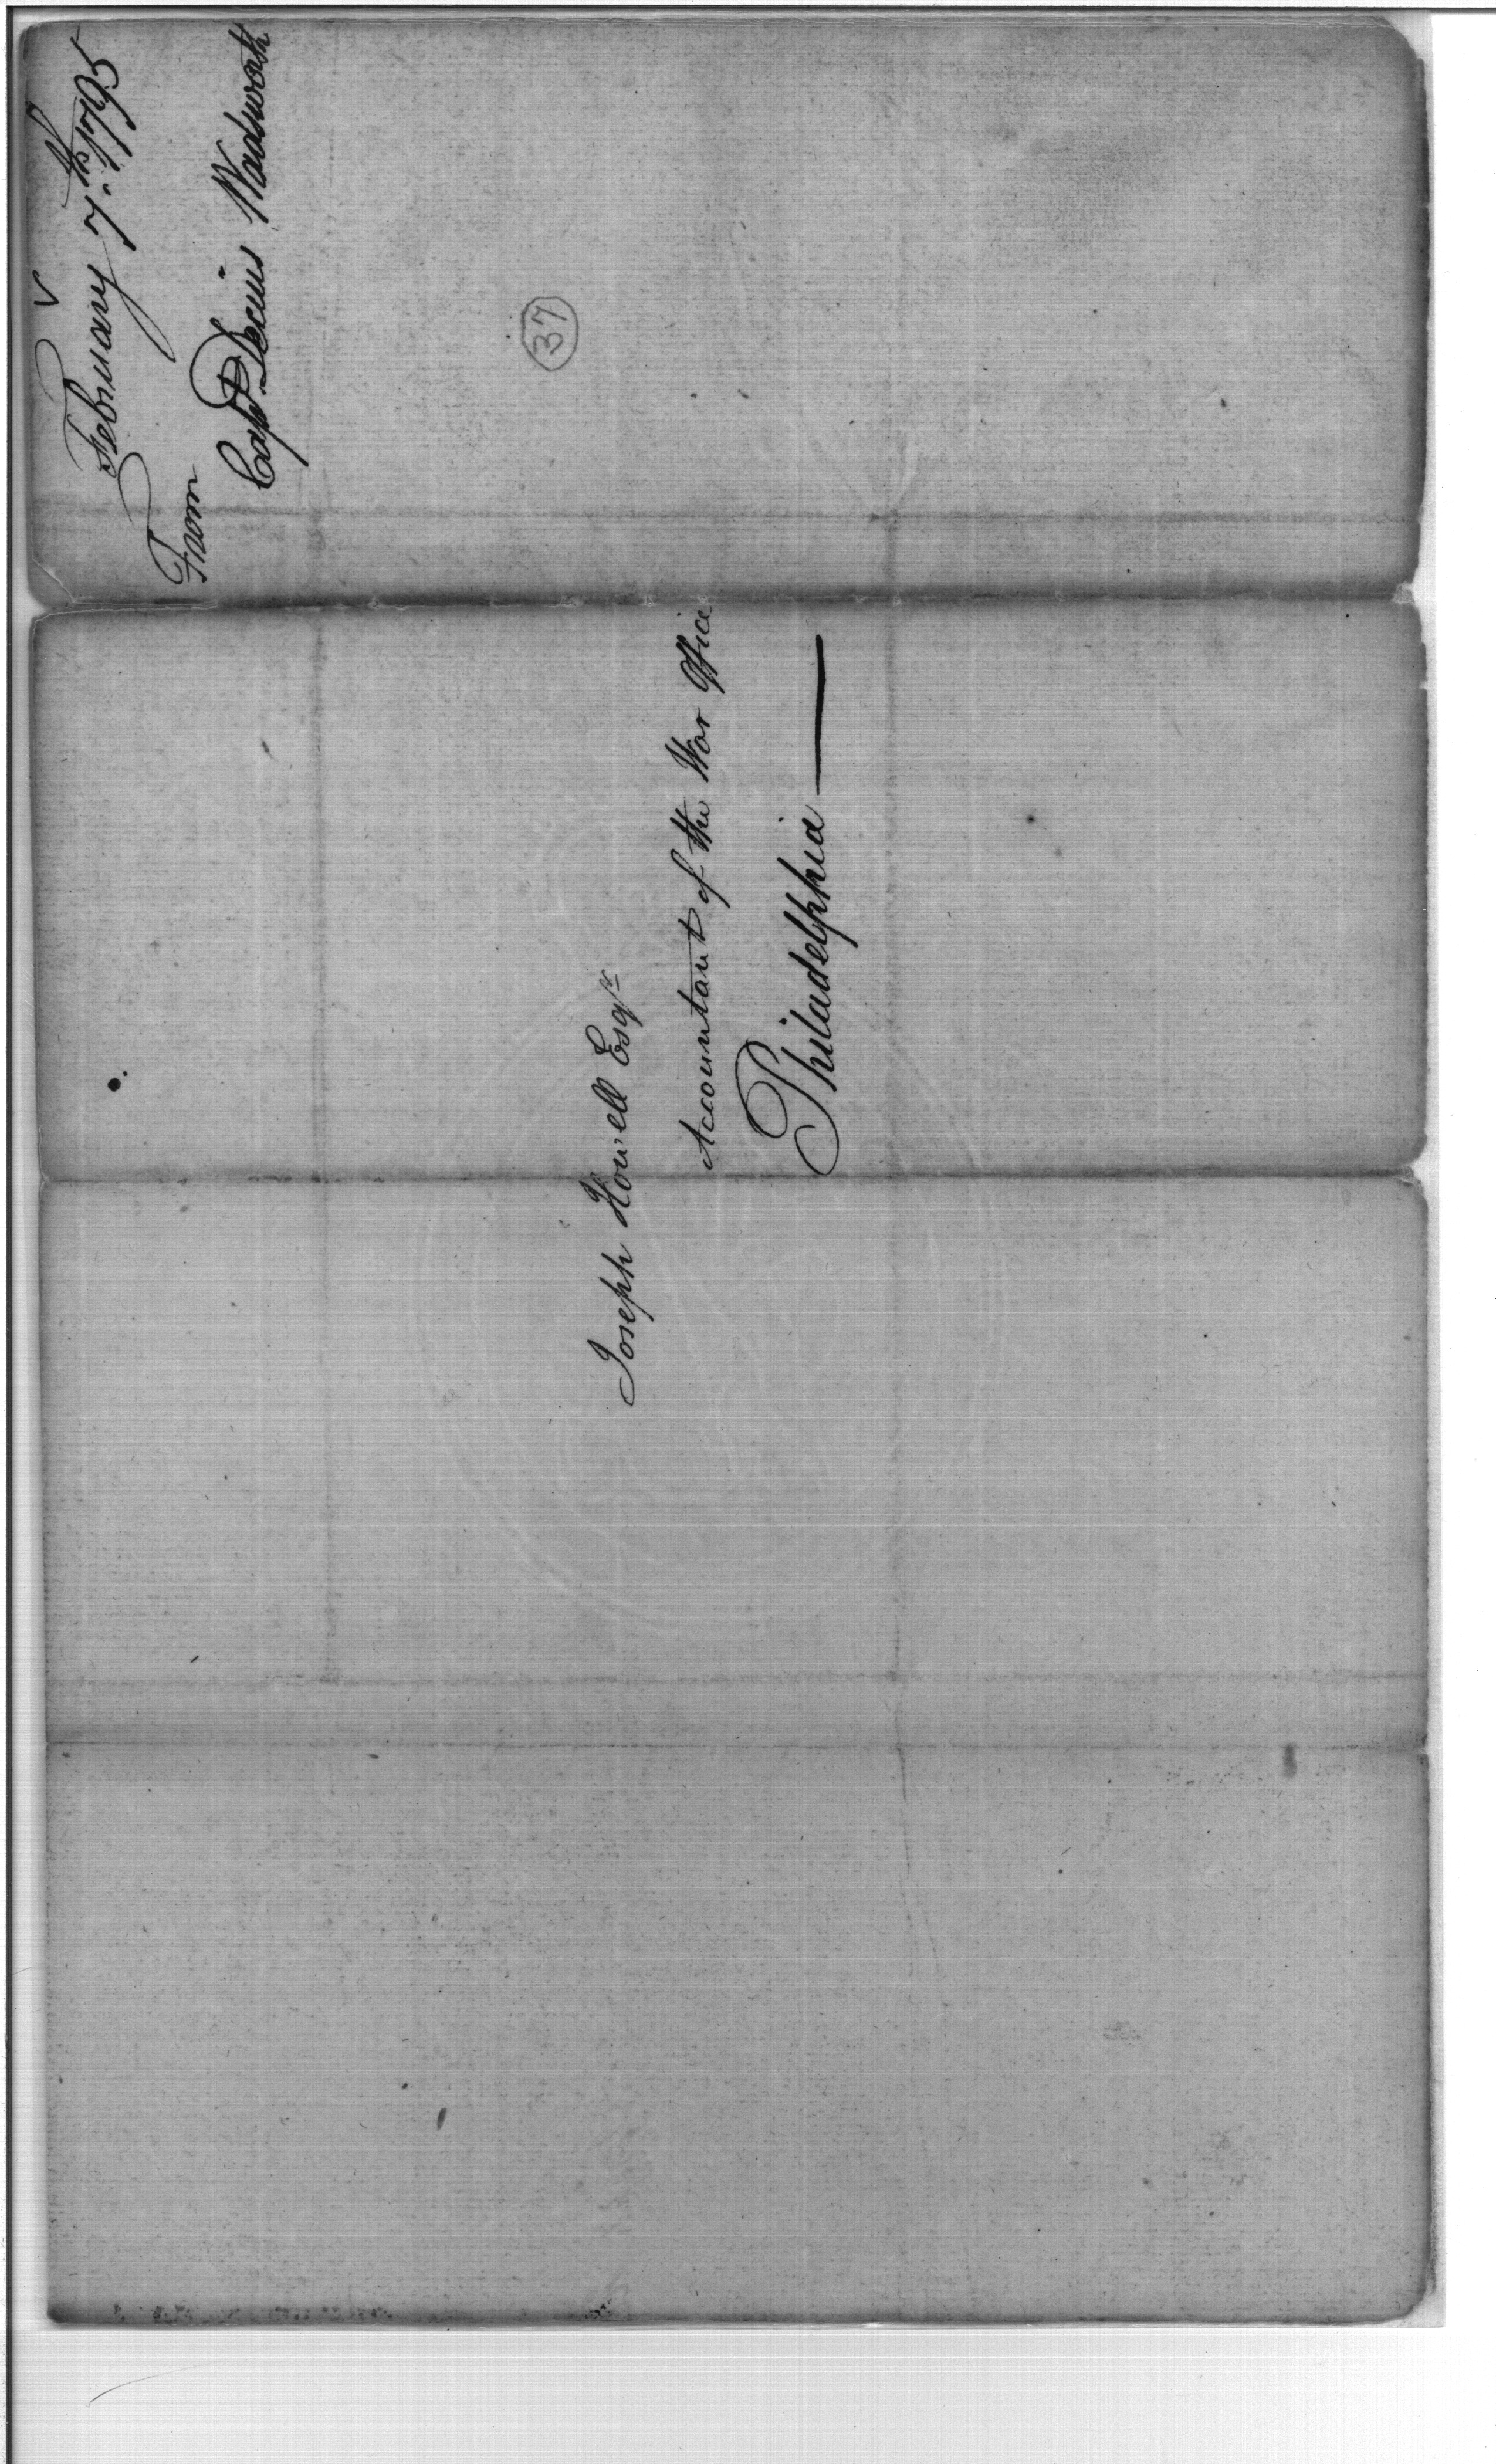 February 7th. 1795
From
Capt Decius Wadsworth
37
Joseph Howell Esqr
Accountant of the War Office
Philadelphia